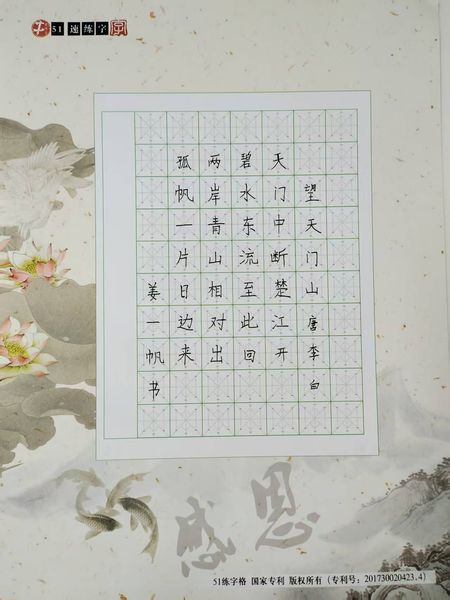 51速练字
望天门山 唐 李白
天门中断楚江开
碧水东流至此回
两岸青山相对出
孤帆一片日边来
姜一帆书
感恩
51练字格 国家专利 版权所有（专利号：201730020423.4）